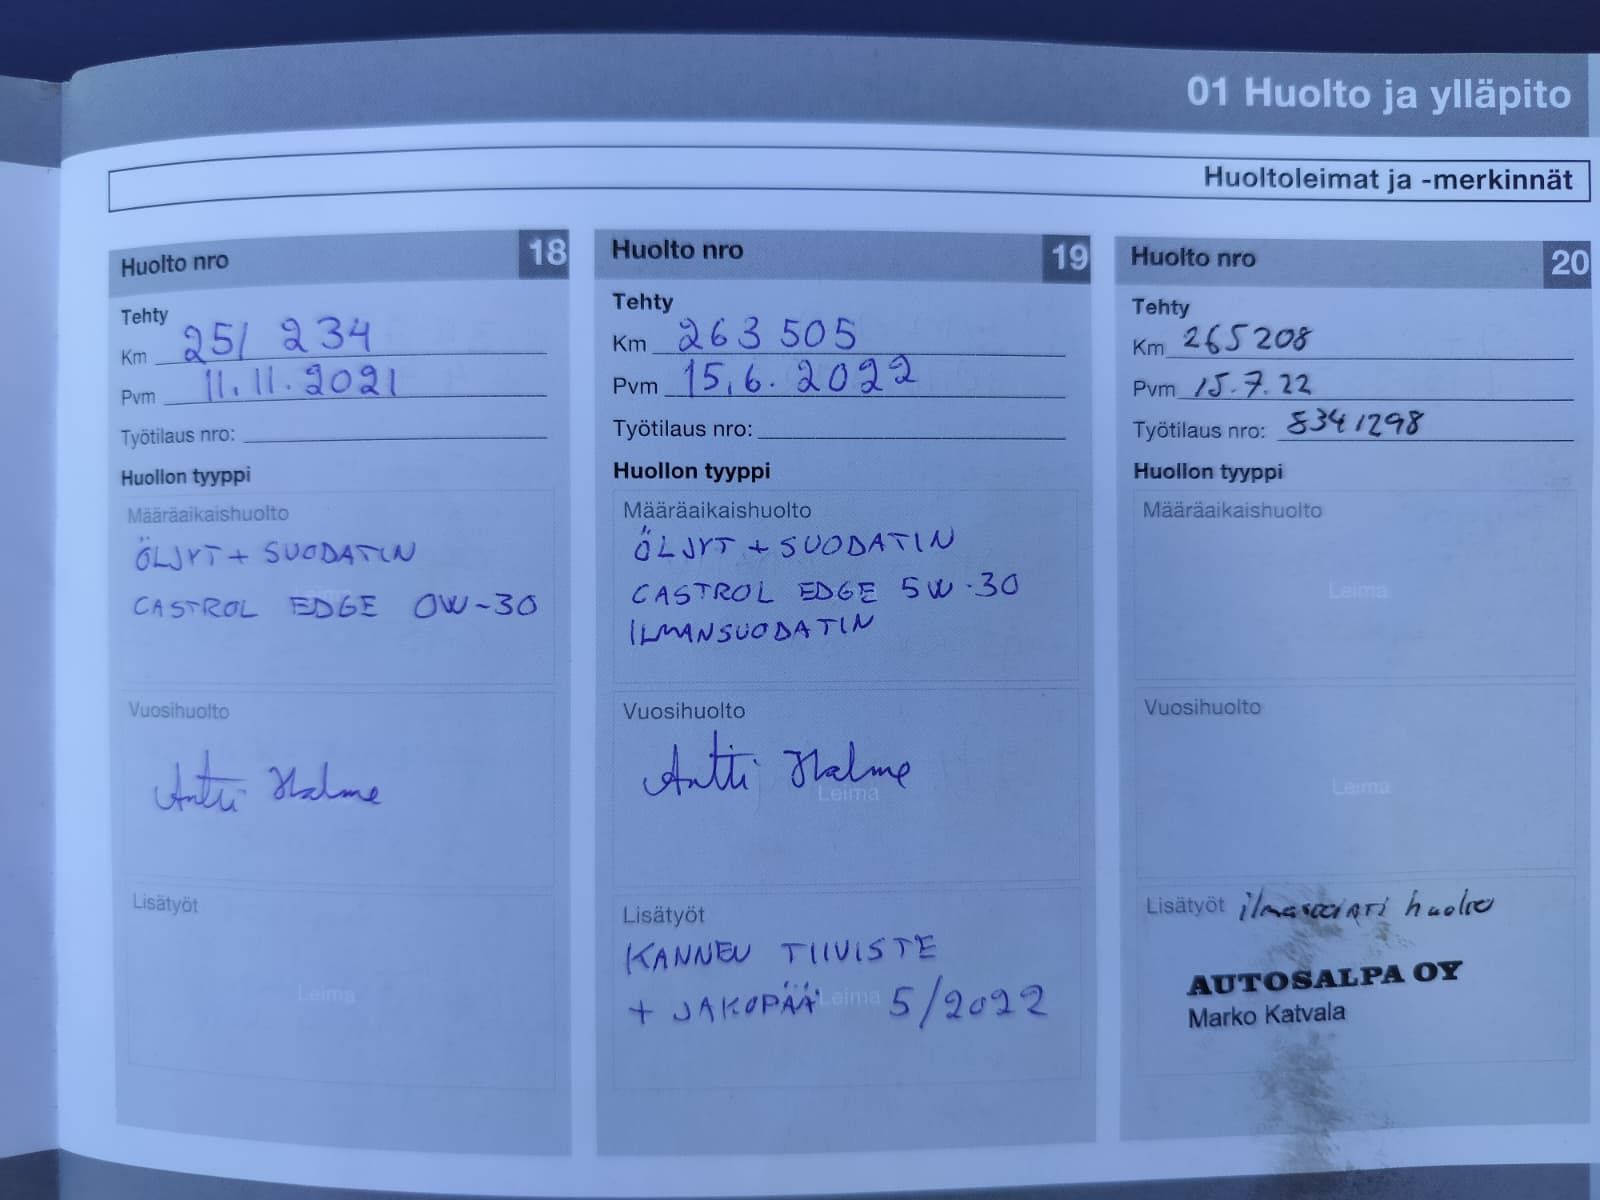 01 Huolto ja ylläpito
Huoltoleimat ja -merkinnät
Huolto nro 18
Tehty
Km 251 234
Pvm 11.11.2021
Työtilaus nro:
Huollon tyyppi
Määräaikaishuolto
ÖLJYT + SUODATIN
CASTROL EDGE 0W-30
Vuosihuolto
Antti Halme
Lisätyöt
Leima
Huolto nro 19
Tehty
Km 263 505
Pvm 15.6.2022
Työtilaus nro:
Huollon tyyppi
Määräaikaishuolto
ÖLJYT + SUODATIN
CASTROL EDGE 5W-30
ILMANSUODATIN
Vuosihuolto
Antti Halme
Leima
Lisätyöt
KANNEN TIIVISTE
+ JAKOPÄÄ Leima 5/2022
Huolto nro 20
Tehty
Km 265208
Pvm 15.7.22
Työtilaus nro: 8341298
Huollon tyyppi
Määräaikaishuolto
Leima
Vuosihuolto
Leima
Lisätyöt huolto
AUTOSALPA OY
Marko Katvala